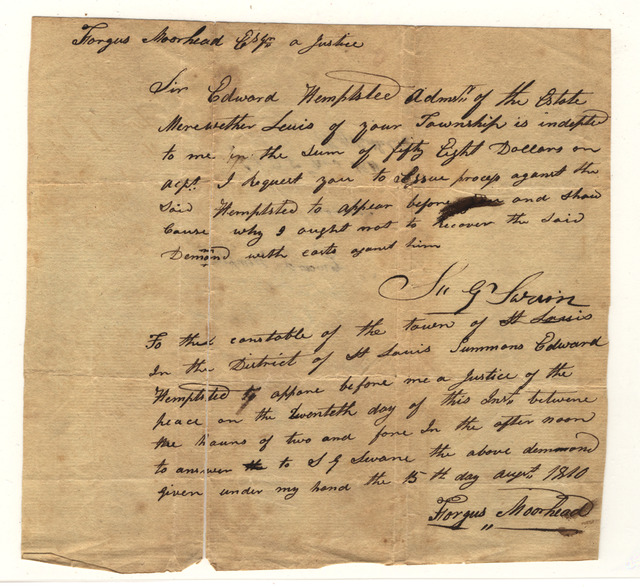 Forgus Moorhead Esqr a Justice
Sir Edward Hemplsted Admsr. of the Estate
Merewether Lewis of your Township is indepted
to me in the sum of fifty Eight Dollars on
acpt. I request you to Issue process against the
said Hemplsted to appear before and shew
Cause why I ought not to recover the said
Demand with costs against him
G Swain
To the constable of the town of St Louis
In the District of St Louis Summons Edward
Hemplsted to appare before me a Justice of the
peace on the twenteth day of this Inst. betwene
the hours of two and fore In the after noon
to answer to S G Swane the above demmond
given under my hand the 15th day augst. 1810
Forgus Moorhead